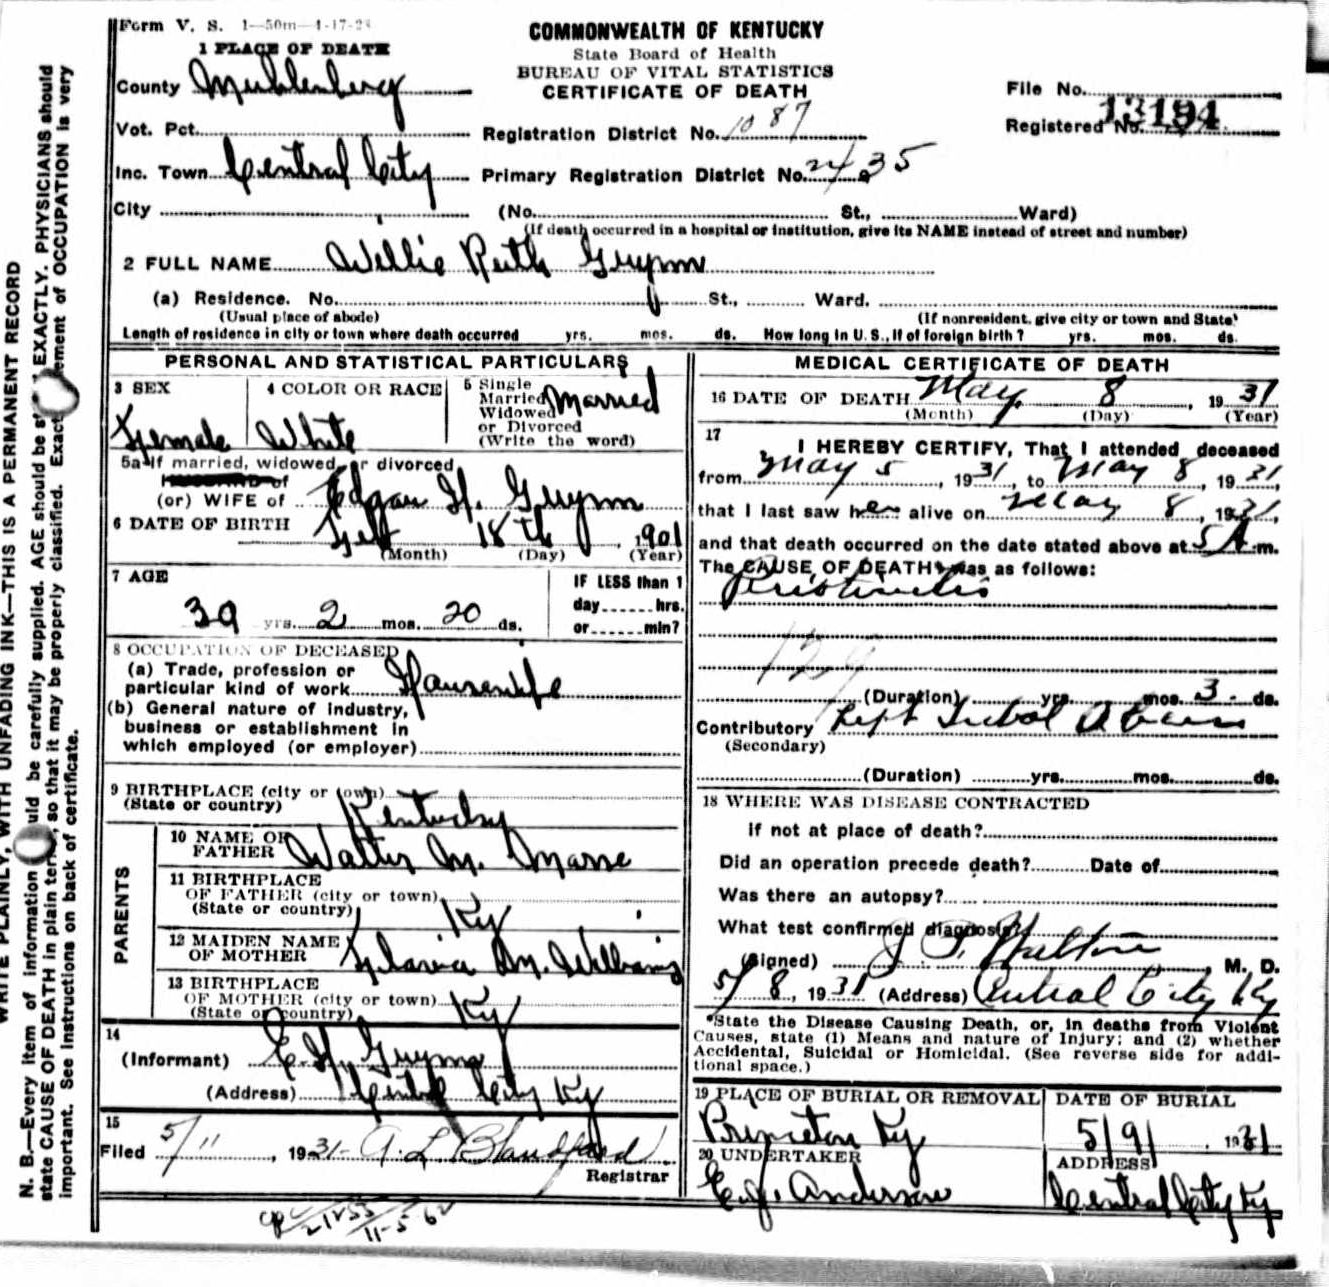 Form V. S. 1—50m—4-17-28
COMMONWEALTH OF KENTUCKY
State Board of Health
BUREAU OF VITAL STATISTICS
CERTIFICATE OF DEATH
1 PLACE OF DEATH
County Muhlenberg
Vot. Pct.
Inc. Town Central City
City
File No.
Registered No. 13194
Registration District No. 1087
Primary Registration District No. 2435
(No. St., Ward)
(If death occurred in a hospital or institution, give its NAME instead of street and number)
2 FULL NAME Willie Ruth Guynn
(a) Residence. No. St., Ward.
(Usual place of abode) (If nonresident, give city or town and State)
Length of residence in city or town where death occurred yrs. mos. ds. How long in U. S., if of foreign birth? yrs. mos. ds.
PERSONAL AND STATISTICAL PARTICULARS
3 SEX
Female
4 COLOR OR RACE
White
5 Single
Married
Widowed
or Divorced
(Write the word)
Married
5a If married, widowed, or divorced
HUSBAND of
(or) WIFE of Edgar H. Guynn
6 DATE OF BIRTH
Sept 18th, 1901
(Month) (Day) (Year)
7 AGE
39 yrs. 2 mos. 20 ds.
IF LESS than 1
day hrs.
or min?
8 OCCUPATION OF DECEASED
(a) Trade, profession or
particular kind of work Housewife
(b) General nature of industry,
business or establishment in
which employed (or employer)
9 BIRTHPLACE (city or town)
(State or country) Kentucky
PARENTS
10 NAME OF
FATHER Walter M.
11 BIRTHPLACE
OF FATHER (city or town)
(State or country) Ky
12 MAIDEN NAME
OF MOTHER M. Williams
13 BIRTHPLACE
OF MOTHER (city or town)
(State or country) Ky
14
(Informant) E. H. Guynn
(Address) Central City Ky
15
Filed 5/11, 1931 A. L. Blandford
Registrar
MEDICAL CERTIFICATE OF DEATH
16 DATE OF DEATH May 8, 1931
(Month) (Day) (Year)
17
I HEREBY CERTIFY, That I attended deceased
from May 5, 1931, to May 8, 1931,
that I last saw her alive on May 8, 1931,
and that death occurred on the date stated above at 5 A.m.
The CAUSE OF DEATH* was as follows:
129
(Duration) yrs. mos. 3 ds.
Contributory
(Secondary)
(Duration) yrs. mos. ds.
18 WHERE WAS DISEASE CONTRACTED
If not at place of death?
Did an operation precede death? Date of
Was there an autopsy?
What test confirmed diagnosis?
(Signed) J. P. Walton, M. D.
5/8, 1931 (Address) Central City Ky
*State the Disease Causing Death, or, in deaths from Violent
Causes, state (1) Means and nature of Injury; and (2) whether
Accidental, Suicidal or Homicidal. (See reverse side for addi-
tional space.)
19 PLACE OF BURIAL OR REMOVAL
Princeton Ky
DATE OF BURIAL
5/9/ 1931
20 UNDERTAKER
E. J. Anderson
ADDRESS
Central City Ky
11-5-62
WRITE PLAINLY, WITH UNFADING INK—THIS IS A PERMANENT RECORD
N. B.—Every item of information should be carefully supplied. AGE should be EXACTLY. PHYSICIANS should
state CAUSE OF DEATH in plain terms, so that it may be properly classified. Exact statement of OCCUPATION is very
important. See instructions on back of certificate.